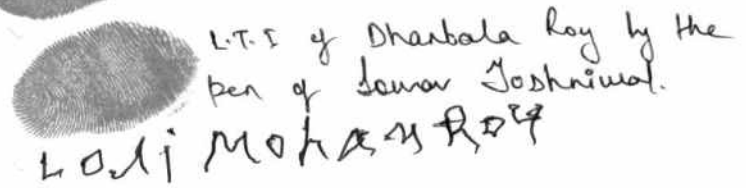 L.T.I of Dhanbala Roy by the
pen of Sourav Toshniwal.
MOHAN ROY